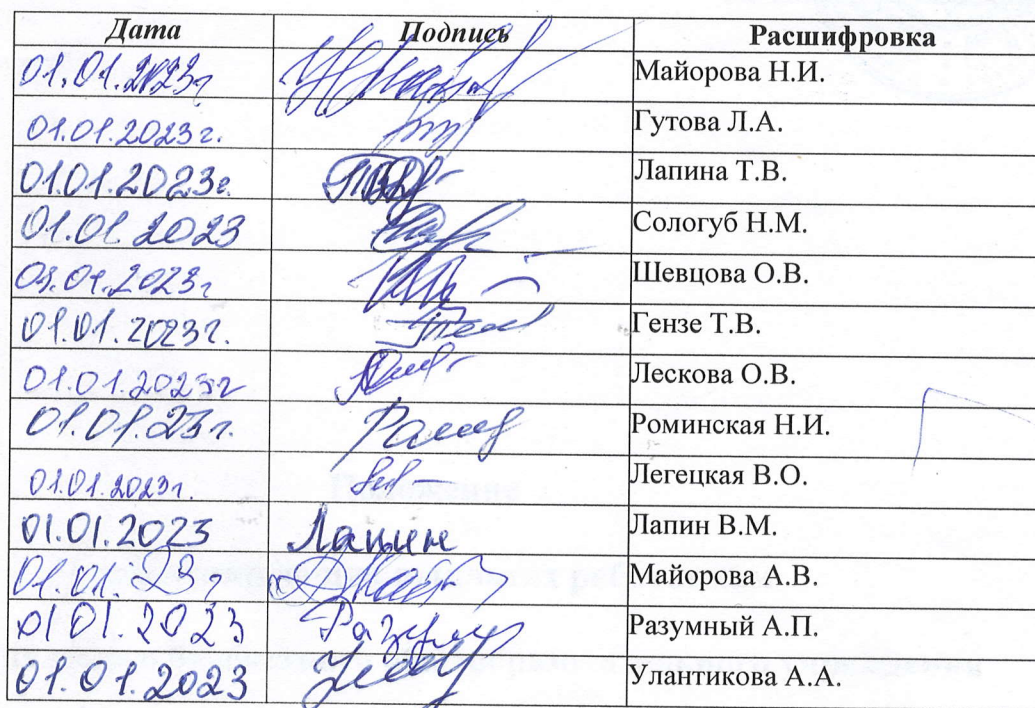 Дата Подпись Расшифровка
01.01.2023г Майорова Н.И.
01.01.2023г. Гутова Л.А.
01.01.2023г. Лапина Т.В.
01.01.2023 Сологуб Н.М.
01.01.2023г Шевцова О.В.
01.01.2023г. Гензе Т.В.
01.01.2023г Лескова О.В.
01.01.23г. Роминская Н.И.
01.01.2023г. Легецкая В.О.
01.01.2023 Лапин Лапин В.М.
01.01.23г Майорова А.В.
01 01.2023 Разумный А.П.
01.01.2023 Улантикова А.А.